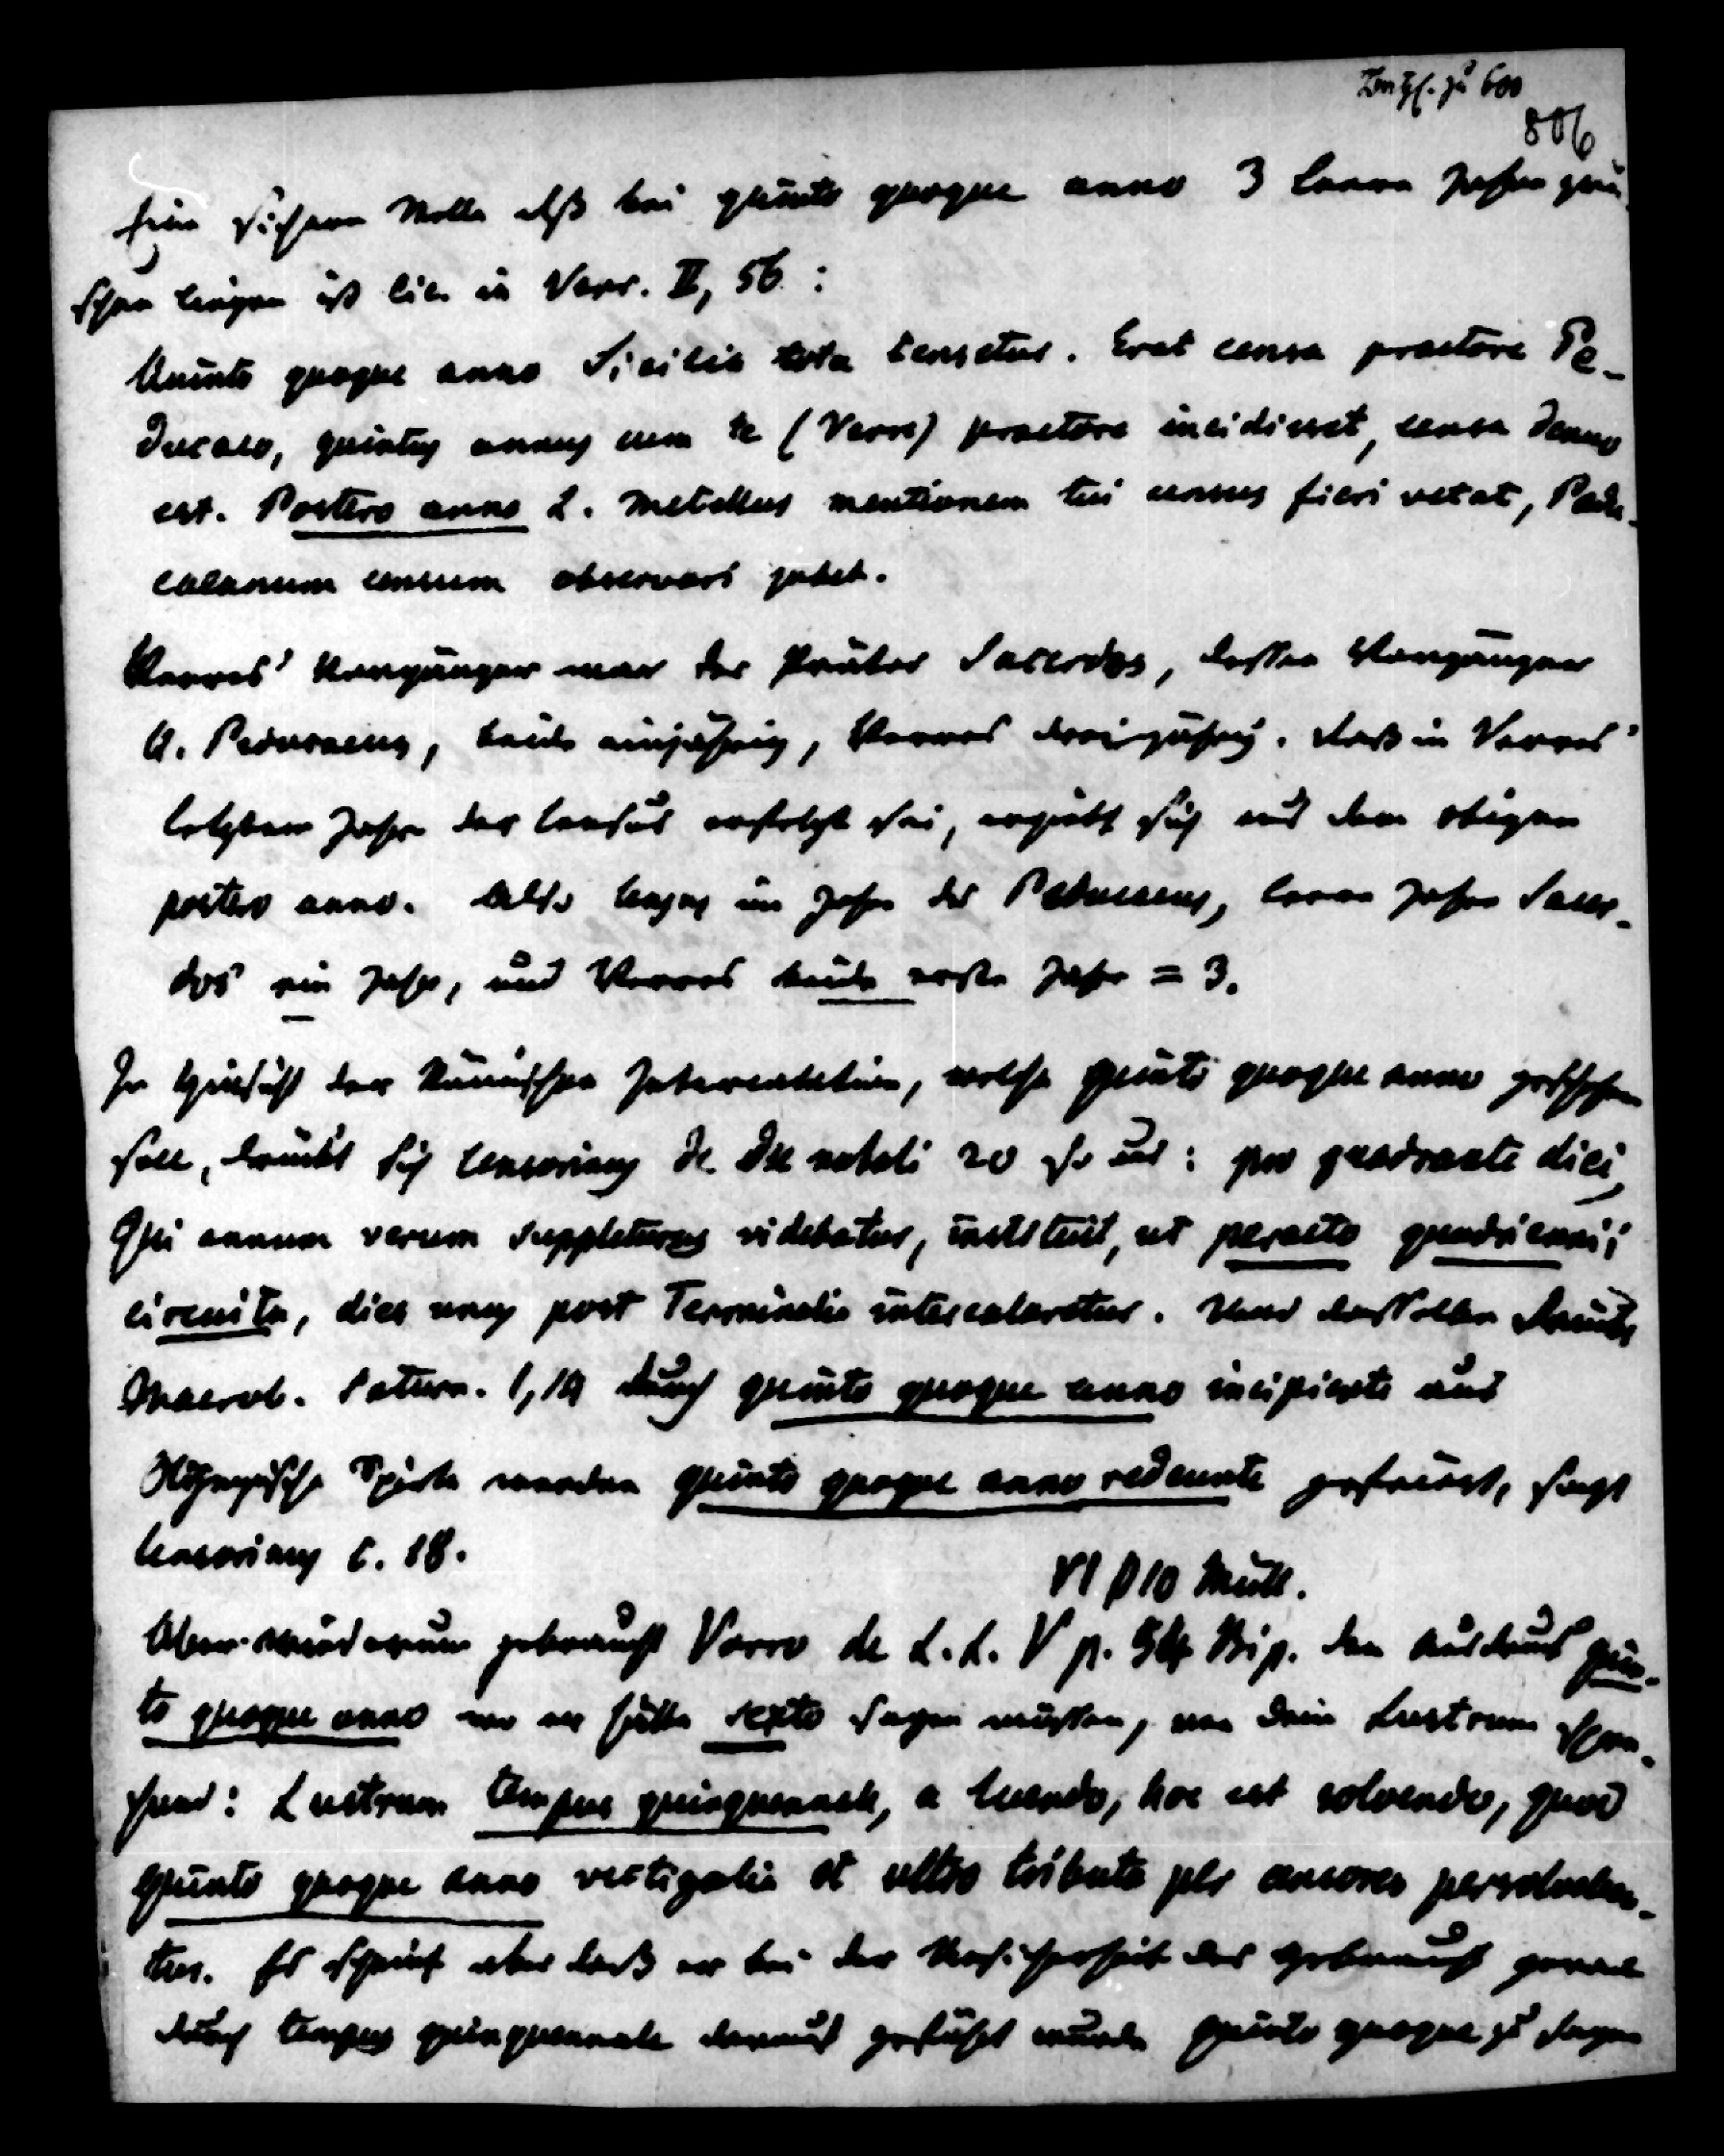 zu 600
806
Eine sichere Stelle daß bei quinto quoque anno 3 leere Jahre zwi-
schen liegen ist Cic. in Verr. II, 56:
Quinto quoque anno Sicilia tota censetur. Erat censa praetore Pe-
ducaeo, quintus annus cum te (Verre) praetore incidisset, censa denuo
est. Postero anno L. Metellus mentionem tui census fieri vetat, Pedu-
caeanum censum observari jubet.
Verres' Vorgänger war der Prätor Sacerdos, dessen Vorgänger
A. Peducaeus, beide einjährig, Verres dreijährig. Daß in Verres'
letztem Jahre der Census erfolgt sei, ergiebt sich aus dem obigen
postero anno. Also Census im Jahre des Peducaeus, leere Jahre Sacer-
dos ein Jahr, und Verres beide erste Jahre = 3.
In Hinsicht der Römischen Intercalation, welche quinto quoque anno geschehen
soll, drückt sich Censorinus de die natali 20 so aus: pro quadrante diei,
qui annum verum suppleturus videbatur, instituit, ut peracto quadriennii
circuitu, dies unus post Terminalia intercalaretur. Und dasselbe drückt
Macrob. Saturn. 1, 14 durch quinto quoque anno incipiente aus
Olympische Spiele werden quinto quoque anno redeunte gefeiert, sagt
Censorinus c. 18.
VI p 10 Müll.
Aber wiederum gebraucht Varro de L. L. V p. 54 Bip. den Ausdruck quin-
to quoque anno wo er hätte sexto sagen müssen, von dem Lustrum spre-
chend: Lustrum tempus quinquennale, a luendo, hoc est solvendo, quod
quinto quoque anno vectigalia et ultro tributa per censores persolveban-
tur. Es scheint aber daß er bei der Unsicherheit des Gebrauchs gerade
durch tempus quinquennale darauf geführt wurde quinto quoque zu sagen